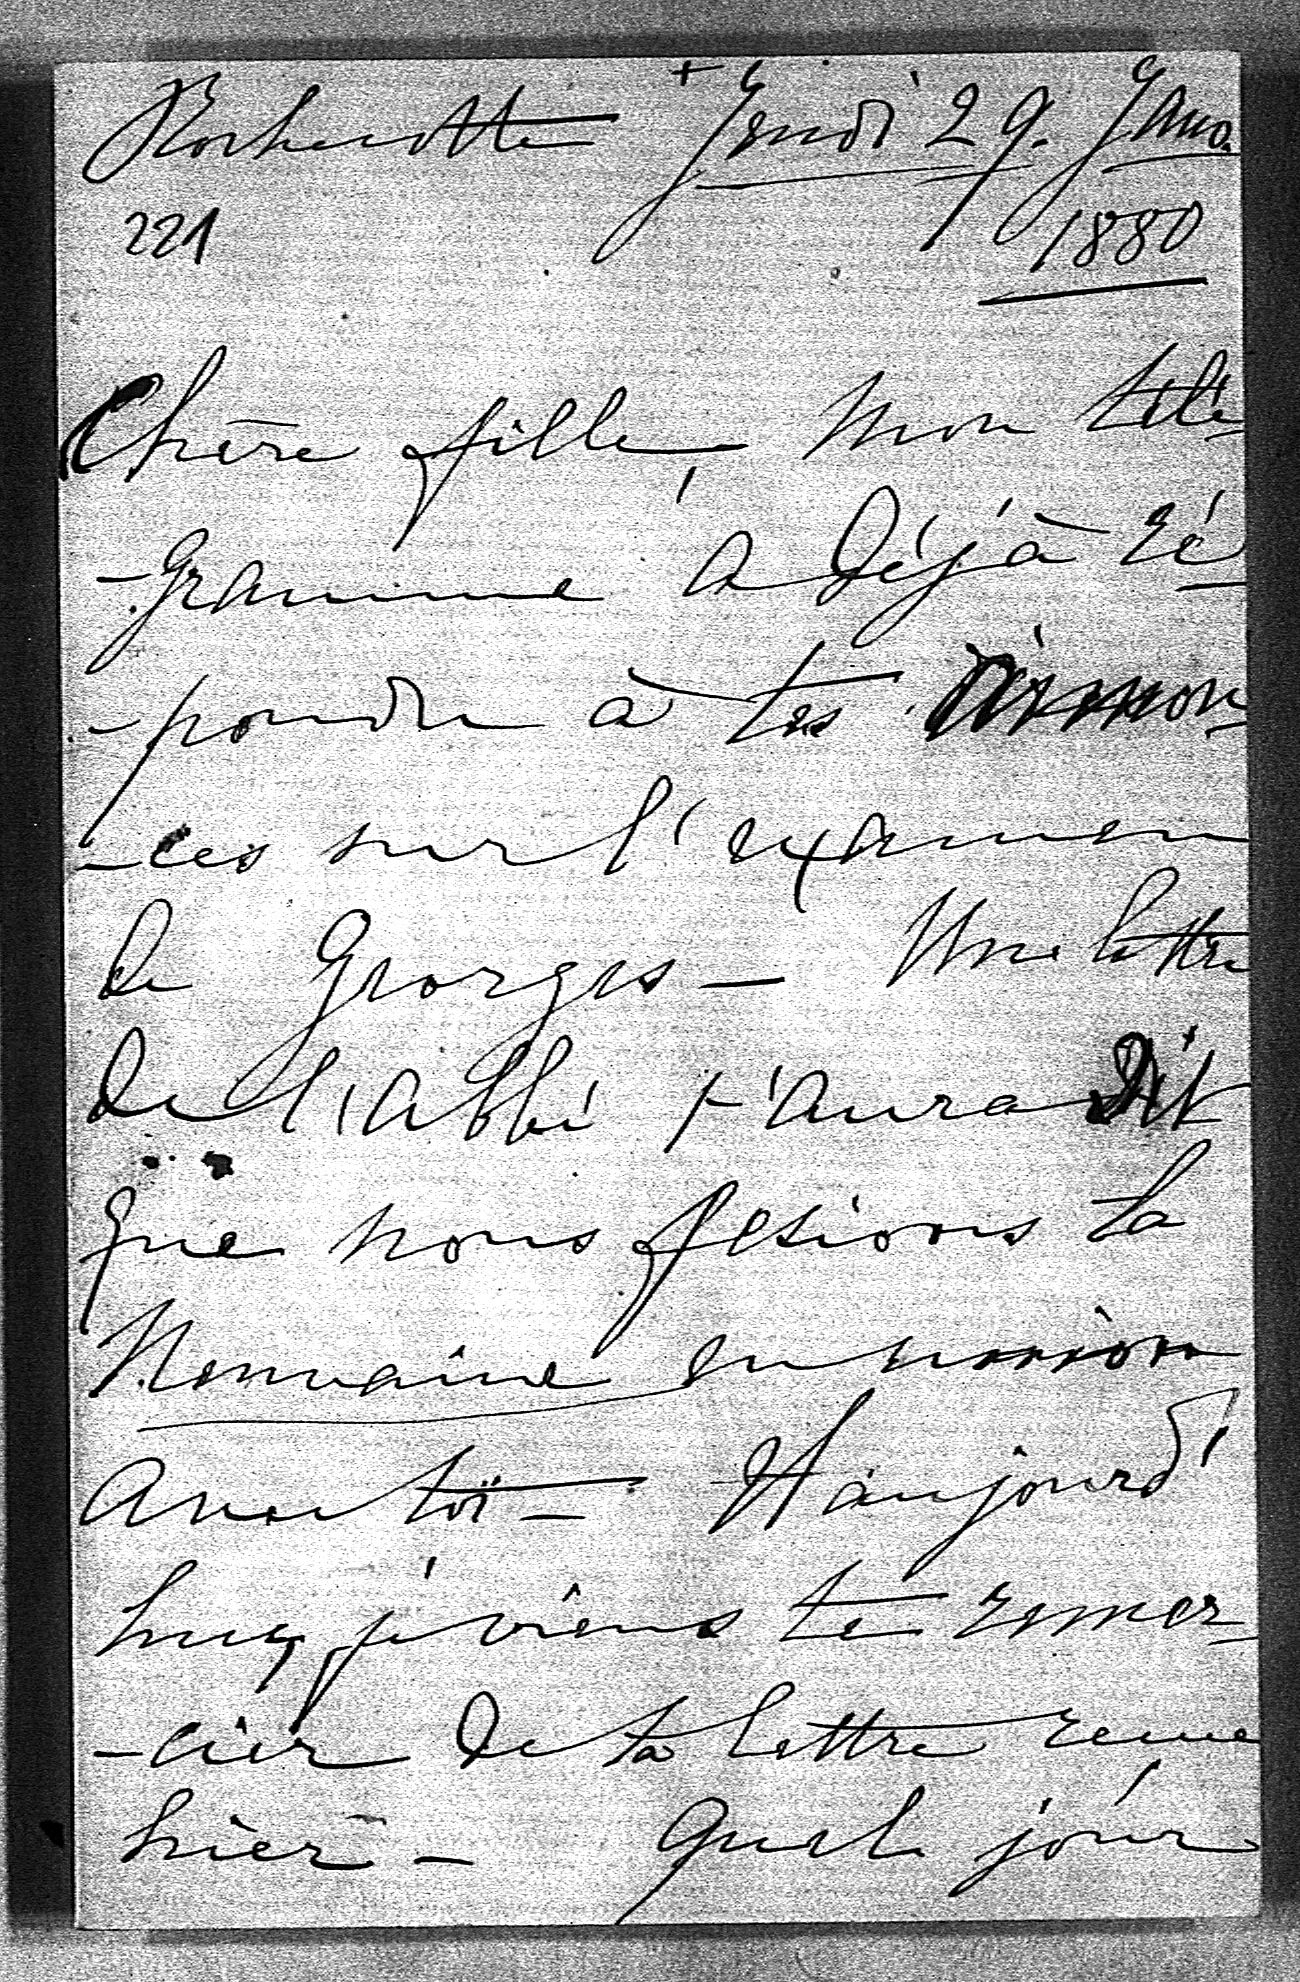 Rochecotte + Jeudi 29. Janv.
221 1880
Chère fille, mon télé-
-gramme a déjà ré-
-pondu à tes
-ces sur l'examen
de Georges — Une lettre
de l'abbé t'aura dit
que nous fesions la
Neuvaine en union
avec toi — Haujourd'
huy, je viens te remer-
-cier de ta lettre reçue
hier — Quel jour